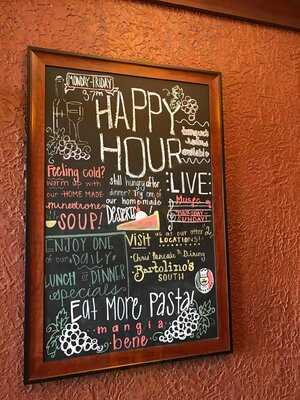 MONDAY-FRIDAY
HAPPY
HOUR
banquet
facilities
available
Feeling cold?
warm up with
our HOME MADE
minestrone
SOUP!
still hungry after
dinner? Try one of
our homemade
DESSERTS
:LIVE:
Music
ENJOY ONE
of our DAILY
LUNCH & DINNER
specials
Visit us at our other 2
LOCATIONS!
"Chris' Pancake & Dining
Bartolino's
SOUTH
Eat More Pasta!
mangia
bene